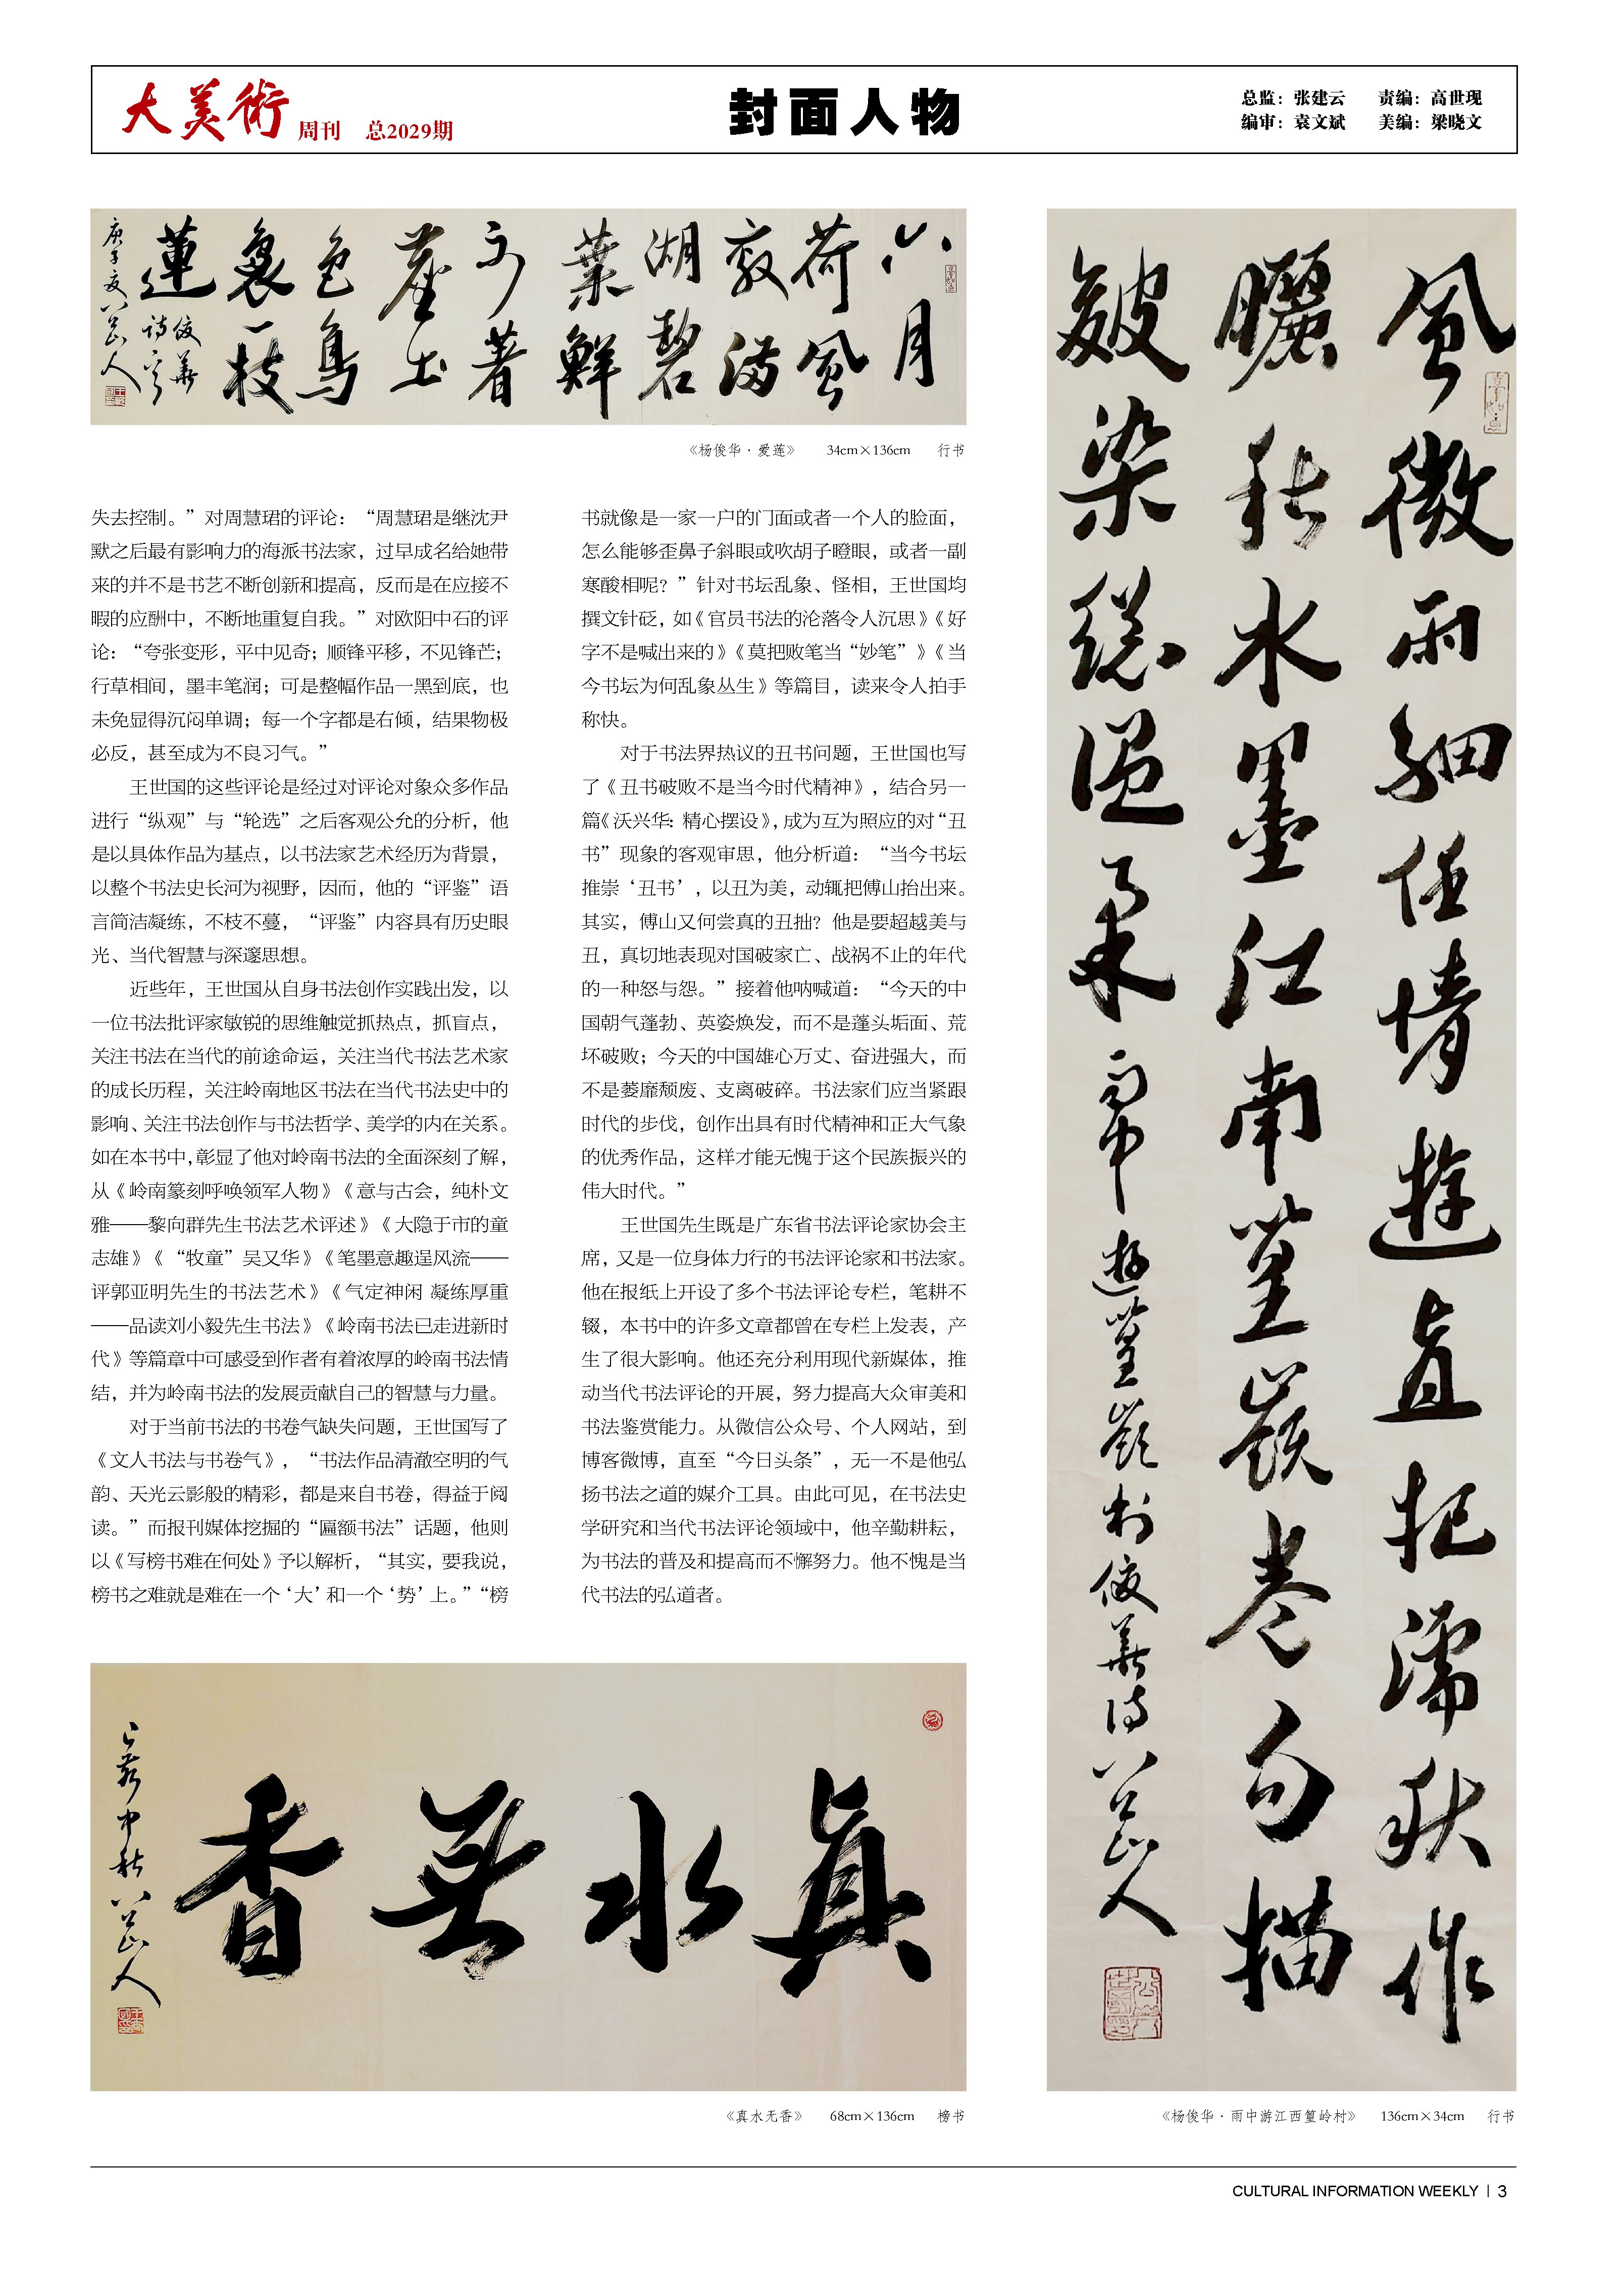 大美術 周刊 总2029期
封面人物
总监：张建云 责编：高世现
编审：袁文斌 美编：梁晓文
六月
荷风
教满
湖碧
葉鲜
不著
塵土
色鳥
裊一枝
蓮
俊華
诗一首
庚子夏八公山人
《杨俊华·爱莲》 34cm×136cm 行书
失去控制。”对周慧珺的评论：“周慧珺是继沈尹
默之后最有影响力的海派书法家，过早成名给她带
来的并不是书艺不断创新和提高，反而是在应接不
暇的应酬中，不断地重复自我。”对欧阳中石的评
论：“夸张变形，平中见奇；顺锋平移，不见锋芒；
行草相间，墨丰笔润；可是整幅作品一黑到底，也
未免显得沉闷单调；每一个字都是右倾，结果物极
必反，甚至成为不良习气。”
王世国的这些评论是经过对评论对象众多作品
进行“纵观”与“轮选”之后客观公允的分析，他
是以具体作品为基点，以书法家艺术经历为背景，
以整个书法史长河为视野，因而，他的“评鉴”语
言简洁凝练，不枝不蔓，“评鉴”内容具有历史眼
光、当代智慧与深邃思想。
近些年，王世国从自身书法创作实践出发，以
一位书法批评家敏锐的思维触觉抓热点，抓盲点，
关注书法在当代的前途命运，关注当代书法艺术家
的成长历程，关注岭南地区书法在当代书法史中的
影响、关注书法创作与书法哲学、美学的内在关系。
如在本书中，彰显了他对岭南书法的全面深刻了解，
从《岭南篆刻呼唤领军人物》《意与古会，纯朴文
雅——黎向群先生书法艺术评述》《大隐于市的童
志雄》《“牧童”吴又华》《笔墨意趣逞风流——
评郭亚明先生的书法艺术》《气定神闲 凝练厚重
——品读刘小毅先生书法》《岭南书法已走进新时
代》等篇章中可感受到作者有着浓厚的岭南书法情
结，并为岭南书法的发展贡献自己的智慧与力量。
对于当前书法的书卷气缺失问题，王世国写了
《文人书法与书卷气》，“书法作品清澈空明的气
韵、天光云影般的精彩，都是来自书卷，得益于阅
读。”而报刊媒体挖掘的“匾额书法”话题，他则
以《写榜书难在何处》予以解析，“其实，要我说，
榜书之难就是难在一个‘大’和一个‘势’上。”“榜
书就像是一家一户的门面或者一个人的脸面，
怎么能够歪鼻子斜眼或吹胡子瞪眼，或者一副
寒酸相呢？”针对书坛乱象、怪相，王世国均
撰文针砭，如《官员书法的沦落令人沉思》《好
字不是喊出来的》《莫把败笔当“妙笔”》《当
今书坛为何乱象丛生》等篇目，读来令人拍手
称快。
对于书法界热议的丑书问题，王世国也写
了《丑书破败不是当今时代精神》，结合另一
篇《沃兴华：精心摆设》，成为互为照应的对“丑
书”现象的客观审思，他分析道：“当今书坛
推崇‘丑书’，以丑为美，动辄把傅山抬出来。
其实，傅山又何尝真的丑拙？他是要超越美与
丑，真切地表现对国破家亡、战祸不止的年代
的一种怒与怨。”接着他呐喊道：“今天的中
国朝气蓬勃、英姿焕发，而不是蓬头垢面、荒
坏破败；今天的中国雄心万丈、奋进强大，而
不是萎靡颓废、支离破碎。书法家们应当紧跟
时代的步伐，创作出具有时代精神和正大气象
的优秀作品，这样才能无愧于这个民族振兴的
伟大时代。”
王世国先生既是广东省书法评论家协会主
席，又是一位身体力行的书法评论家和书法家。
他在报纸上开设了多个书法评论专栏，笔耕不
辍，本书中的许多文章都曾在专栏上发表，产
生了很大影响。他还充分利用现代新媒体，推
动当代书法评论的开展，努力提高大众审美和
书法鉴赏能力。从微信公众号、个人网站，到
博客微博，直至“今日头条”，无一不是他弘
扬书法之道的媒介工具。由此可见，在书法史
学研究和当代书法评论领域中，他辛勤耕耘，
为书法的普及和提高而不懈努力。他不愧是当
代书法的弘道者。
真水无香
中秋八公山人
《真水无香》 68cm×136cm 榜书
風微雨細任情遊直把濡秋作
曬秋水墨江南篁嶺卷勾描
皴染總温柔
雨中遊篁嶺村俊華诗八公山人
《杨俊华·雨中游江西篁岭村》 136cm×34cm 行书
CULTURAL INFORMATION WEEKLY | 3